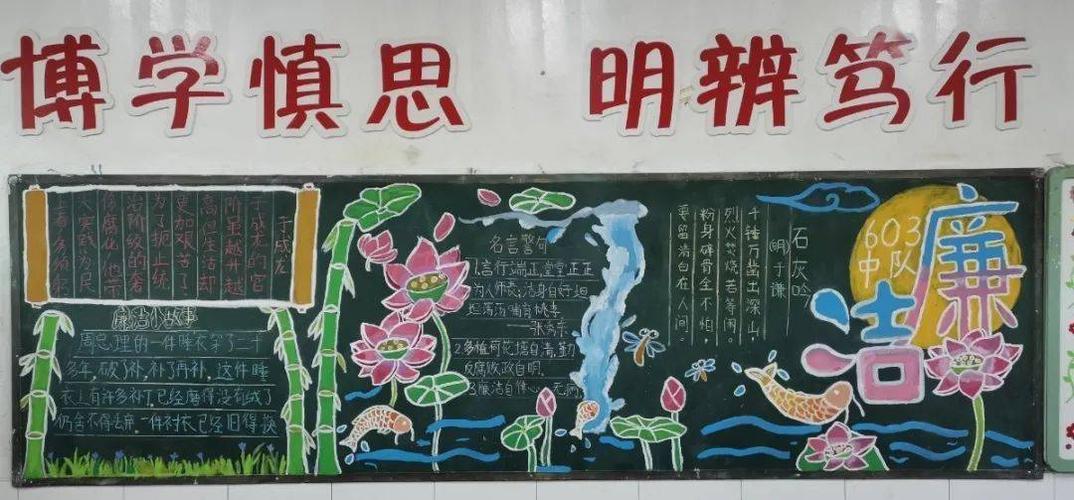 博学慎思 明辨笃行
于成龙
于成龙的官
阶虽越升越
高但生活却
更加艰苦了
为了扼止统
治阶级的奢
侈腐化，他带
廉洁小故事
周总理的一件睡衣穿了二十
多年，破了补，补了再补，这件睡
衣上有许多补丁已经磨得没有绒了
仍舍不得丢弃，一件衬衣已经旧得换
名言警句
1.言行端正，堂堂正正
为人师表，洁身自好
2.多植荷花塘自清，勤
反腐败政自明
石灰吟
(明)于谦
千锤万凿出深山，
烈火焚烧若等闲。
粉身碎骨全不怕，
要留清白在人间。
603
中队
廉
洁